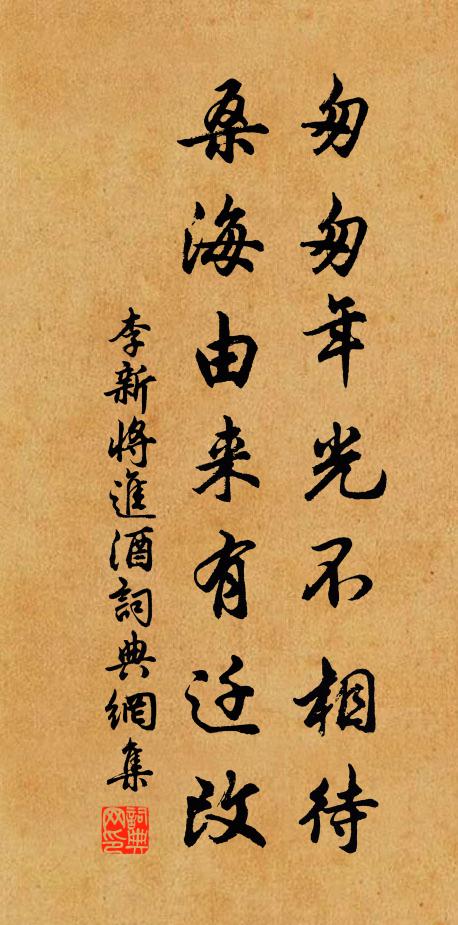 匆匆年光不相待
桑海由来有迁改
李新将進酒詞典網集
詞典网印